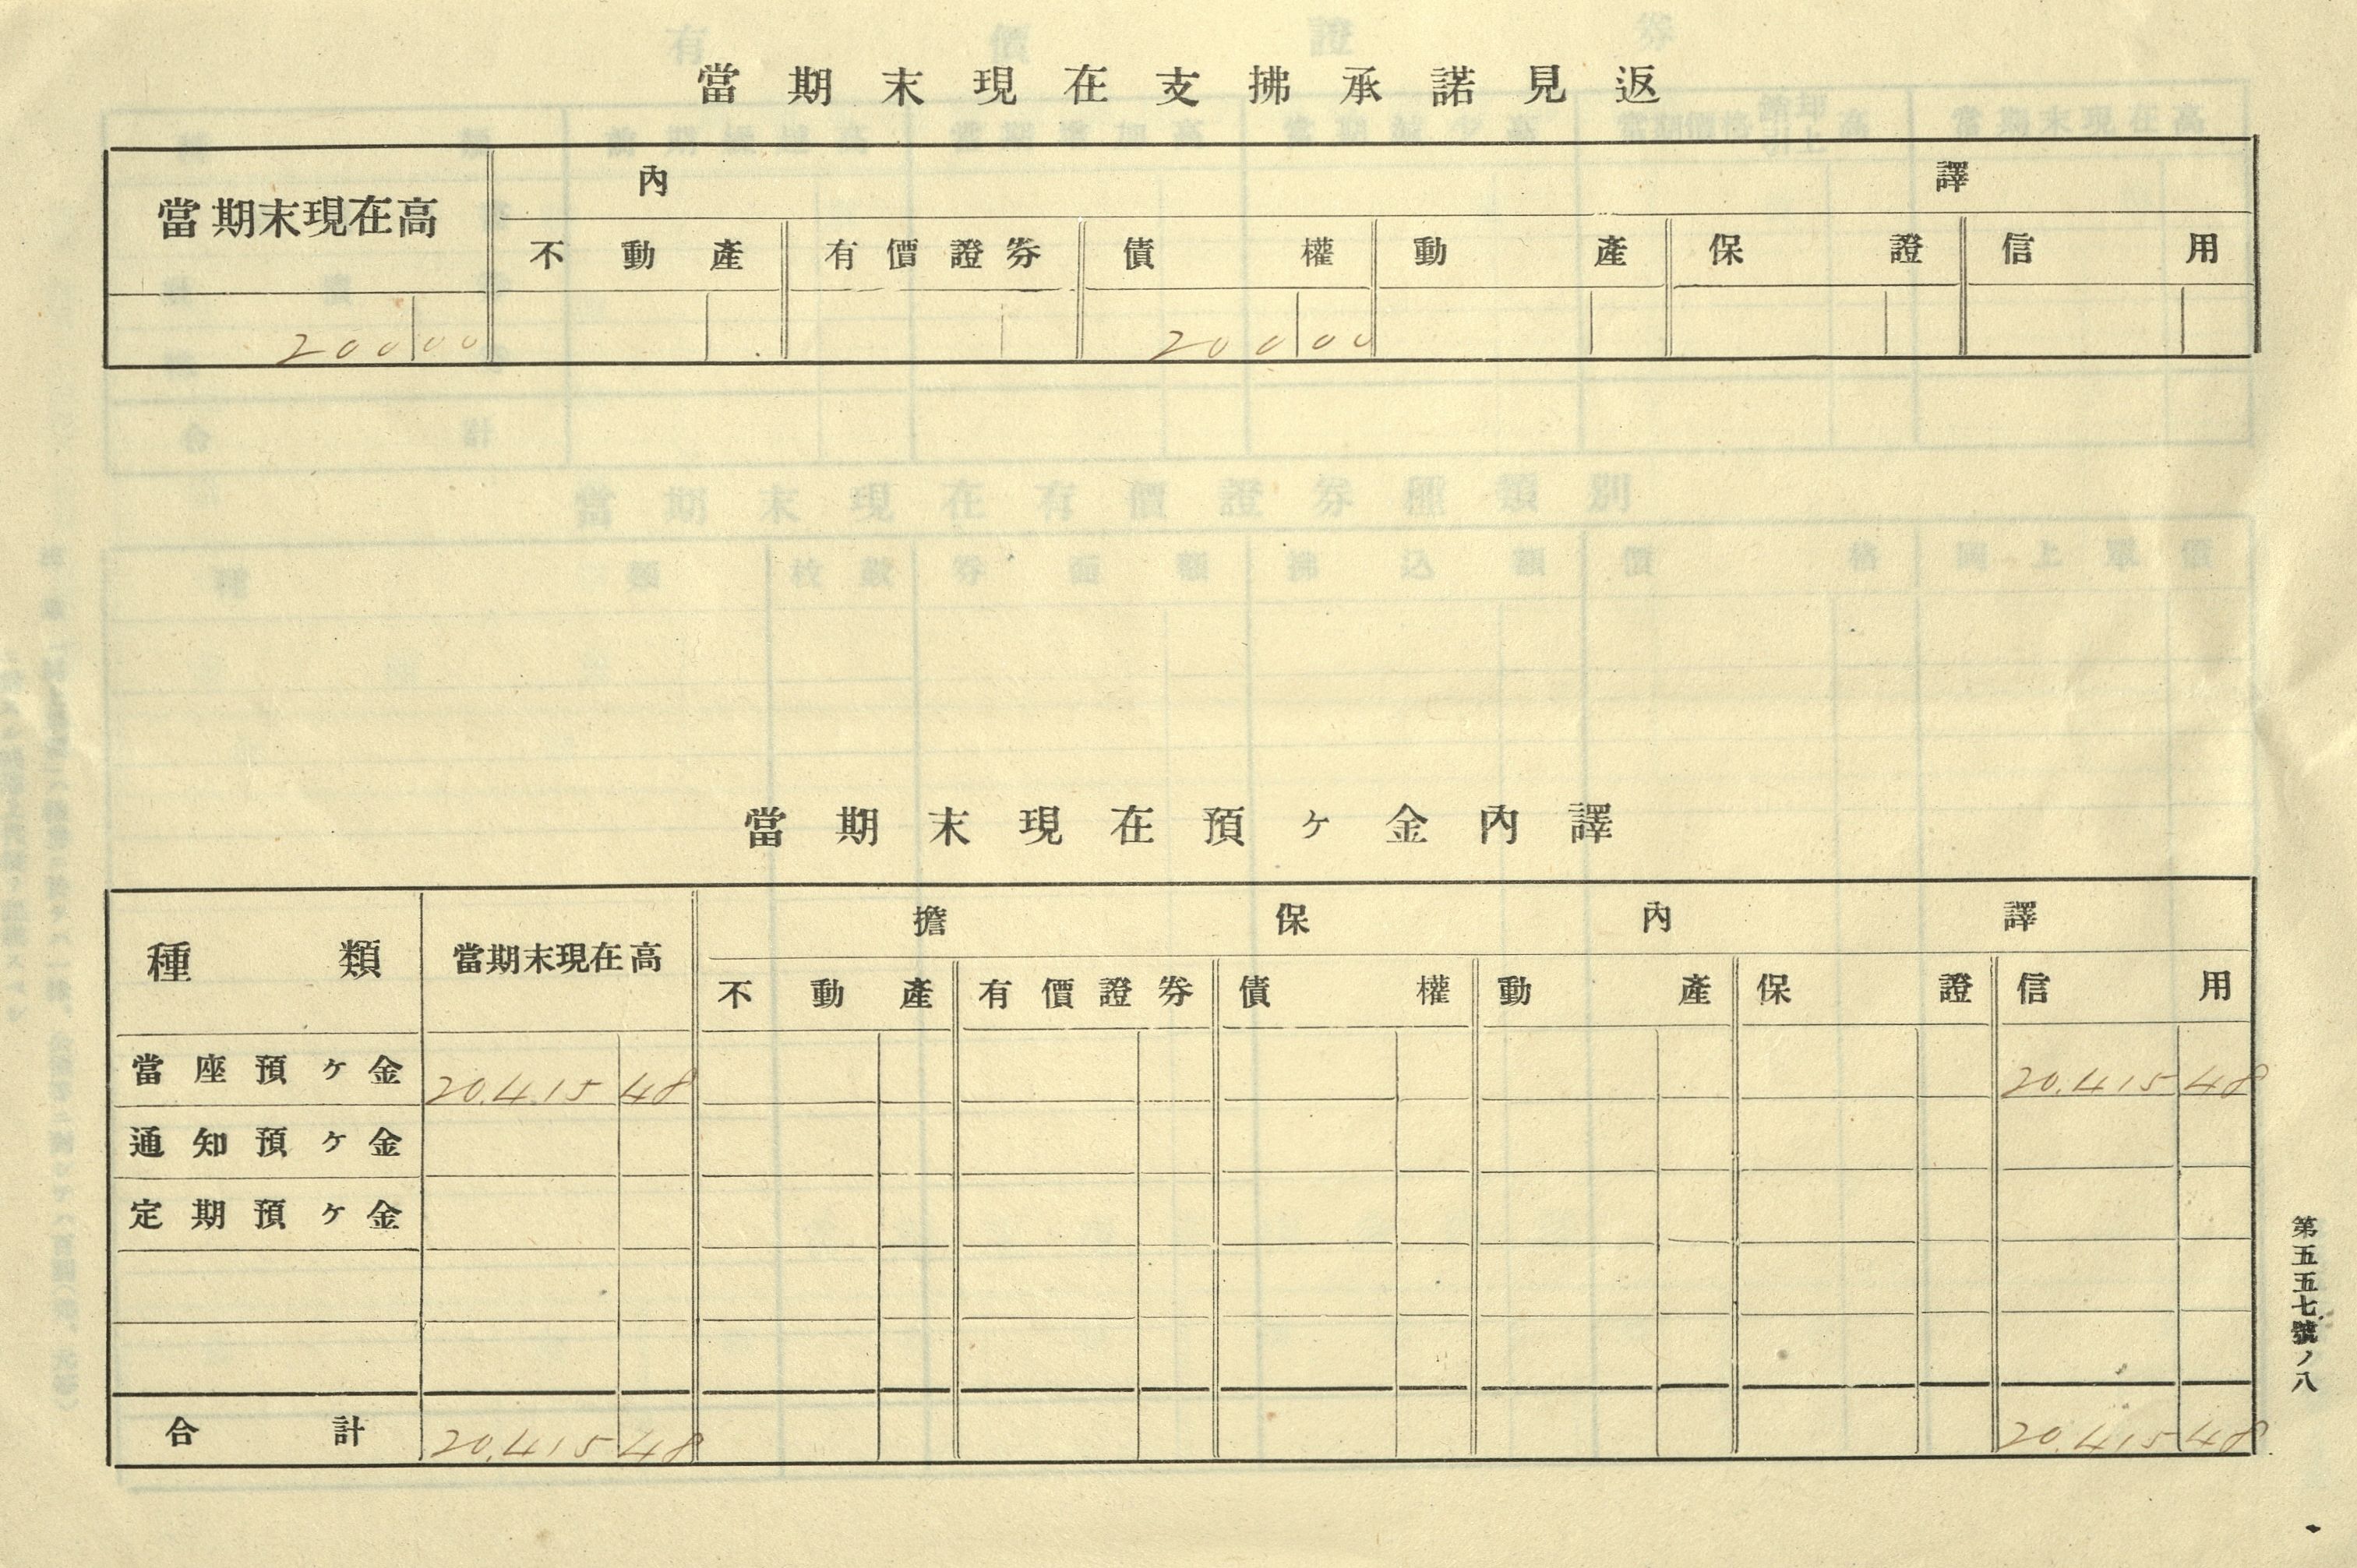 當期末現在支拂承諾見返
當期末現在高 內譯
不動產 有價證券 債權 動產 保證 信用
200 00 200 00
當期末現在預ヶ金內譯
種類 當期末現在高 擔保內譯
不動產 有價證券 債權 動產 保證 信用
當座預ヶ金 20.415 48 20.415 48
通知預ヶ金
定期預ヶ金
合計 20.415 48 20.415 48
第五五七號ノ八